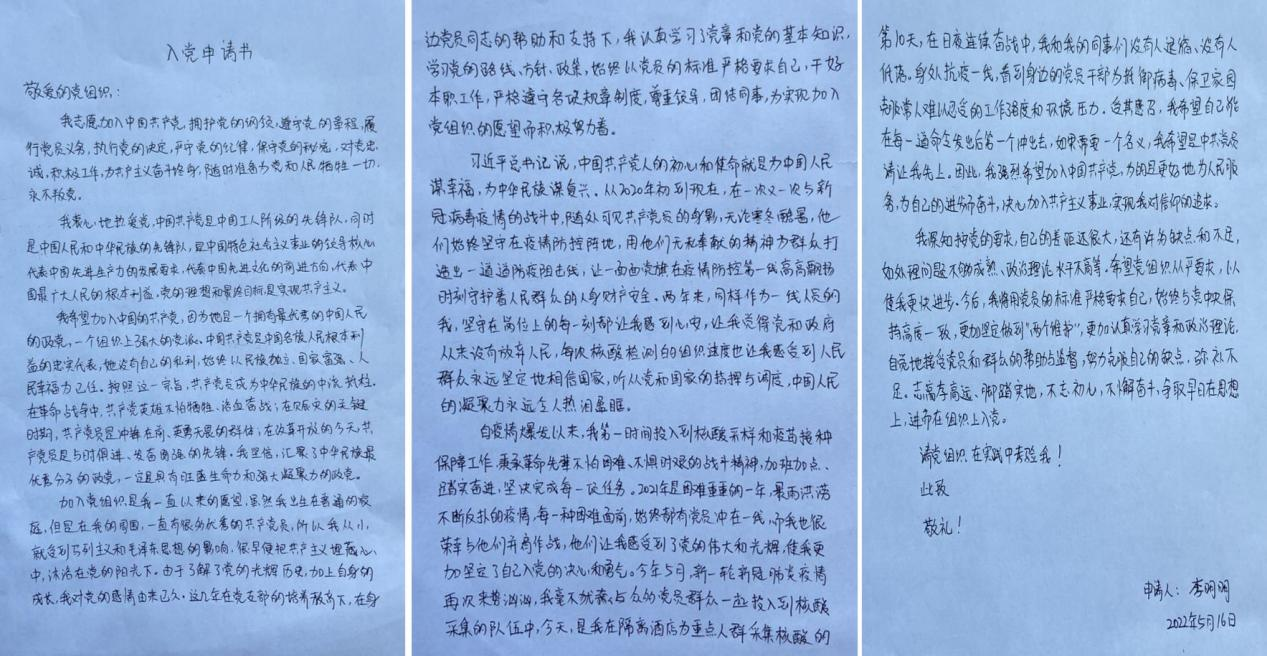 入党申请书
敬爱的党组织：
我志愿加入中国共产党，拥护党的纲领，遵守党的章程，履
行党员义务，执行党的决定，严守党的纪律，保守党的秘密，对党忠
诚，积极工作，为共产主义奋斗终身，随时准备为党和人民牺牲一切，
永不叛党。
我衷心地热爱党，中国共产党是中国工人阶级的先锋队，同时
是中国人民和中华民族的先锋队，是中国特色社会主义事业的领导核心
代表中国先进生产力的发展要求，代表中国先进文化的前进方向，代表中
国最广大人民的根本利益。党的理想和最终目标是实现共产主义。
我希望加入中国的共产党，因为她是一个拥有最优秀的中国人民
的政党，一个组织上强大的党派。中国共产党是中国各族人民根本利
益的忠实代表，他没有自己的私利，始终以民族独立、国家富强、人
民幸福为己任。按照这一宗旨，共产党员成为中华民族的中流砥柱。
在革命战争中，共产党英雄不怕牺牲、浴血奋战；在赈灾的关键
时期，共产党员是冲锋在前、英勇无畏的群体；在改革开放的今天，共
产党员是与时俱进、发奋图强的先锋。我坚信，汇聚了中华民族最
优秀分子的政党，一定是具有旺盛生命力和强大凝聚力的政党。
加入党组织是我一直以来的愿望，虽然我出生在普通的家
庭，但是在我的周围，一直有很多优秀的共产党员，所以我从小
就受到马列主义和毛泽东思想的影响，很早便把共产主义埋藏心
中，沐浴在党的阳光下。由于了解了党的光辉历史，加上自身的
成长，我对党的感情由来已久。这几年在党支部的培养教育下，在身
边党员同志的帮助和支持下，我认真学习了党章和党的基本知识，
学习党的路线、方针、政策，始终以党员的标准严格要求自己，干好
本职工作，严格遵守各项规章制度，尊重领导，团结同事，为实现加入
党组织的愿望而积极努力着。
习近平总书记说，中国共产党人的初心和使命就是为中国人民
谋幸福，为中华民族谋复兴。从2020年初到现在，在一次又一次与新
冠病毒疫情的战斗中，随处可见共产党员的身影，无论寒冬酷暑，他
们始终坚守在疫情防控阵地，用他们无私奉献的精神为群众打
造出一道道防疫阻击线，让一面面党旗在疫情防控第一线高高飘扬
时刻守护着人民群众的人身财产安全。两年来，同样作为一线人员的
我，坚守在岗位上的每一刻都让我感到心安，让我觉得党和政府
从来没有放弃人民，每次核酸检测的组织速度也让我感受到人民
群众永远坚定地相信国家，听从党和国家的指挥与调度，中国人民
的凝聚力永远令人热泪盈眶。
自疫情爆发以来，我第一时间投入到核酸采样和疫苗接种
保障工作。秉承革命先辈不怕困难、不惧时艰的战斗精神，加班加点、
踏实奋进，坚决完成每一项任务。2021年是困难重重的一年，暴雨洪涝
不断反扑的疫情，每一种困难面前，始终都有党员冲在一线，而我也很
荣幸与他们并肩作战，他们让我感受到了党的伟大和光辉，使我更
加坚定了自己入党的决心和勇气。今年5月，新一轮新冠肺炎疫情
再次来势汹汹，我毫不犹豫与众多党员群众一道投入到核酸
采集的队伍中，今天，是我在隔离酒店为重点人群采集核酸的
第10天，在日夜连续奋战中，我和我的同事们没有人退缩、没有人
低落。身处抗疫一线，看到身边的党员干部为抵御病毒、保卫家园
克服常人难以忍受的工作强度和环境压力。受其感召，我希望自己能
在每一道命令发出后第一个冲出去，如果需要一个名义，我希望是中共党员
请让我先上。因此，我强烈希望加入中国共产党，为的是更好地为人民服
务，为自己的进步而奋斗，决心加入共产主义事业，实现我对信仰的追求。
我深知按党的要求，自己的差距还很大，还有许多缺点和不足，
如处理问题不够成熟、政治理论水平不高等。希望党组织从严要求，以
使我更快进步。今后，我将用党员的标准严格要求自己，始终与党中央保
持高度一致，更加坚定做到“两个维护”，更加认真学习党章和政治理论，
自觉地接受党员和群众的帮助与监督，努力克服自己的缺点，弥补不
足。志高存高远、脚踏实地，不忘初心，不懈奋斗，争取早日在思想
上，进而在组织上入党。
请党组织在实践中考验我！
此致
敬礼！
申请人：李明明
2022年5月16日